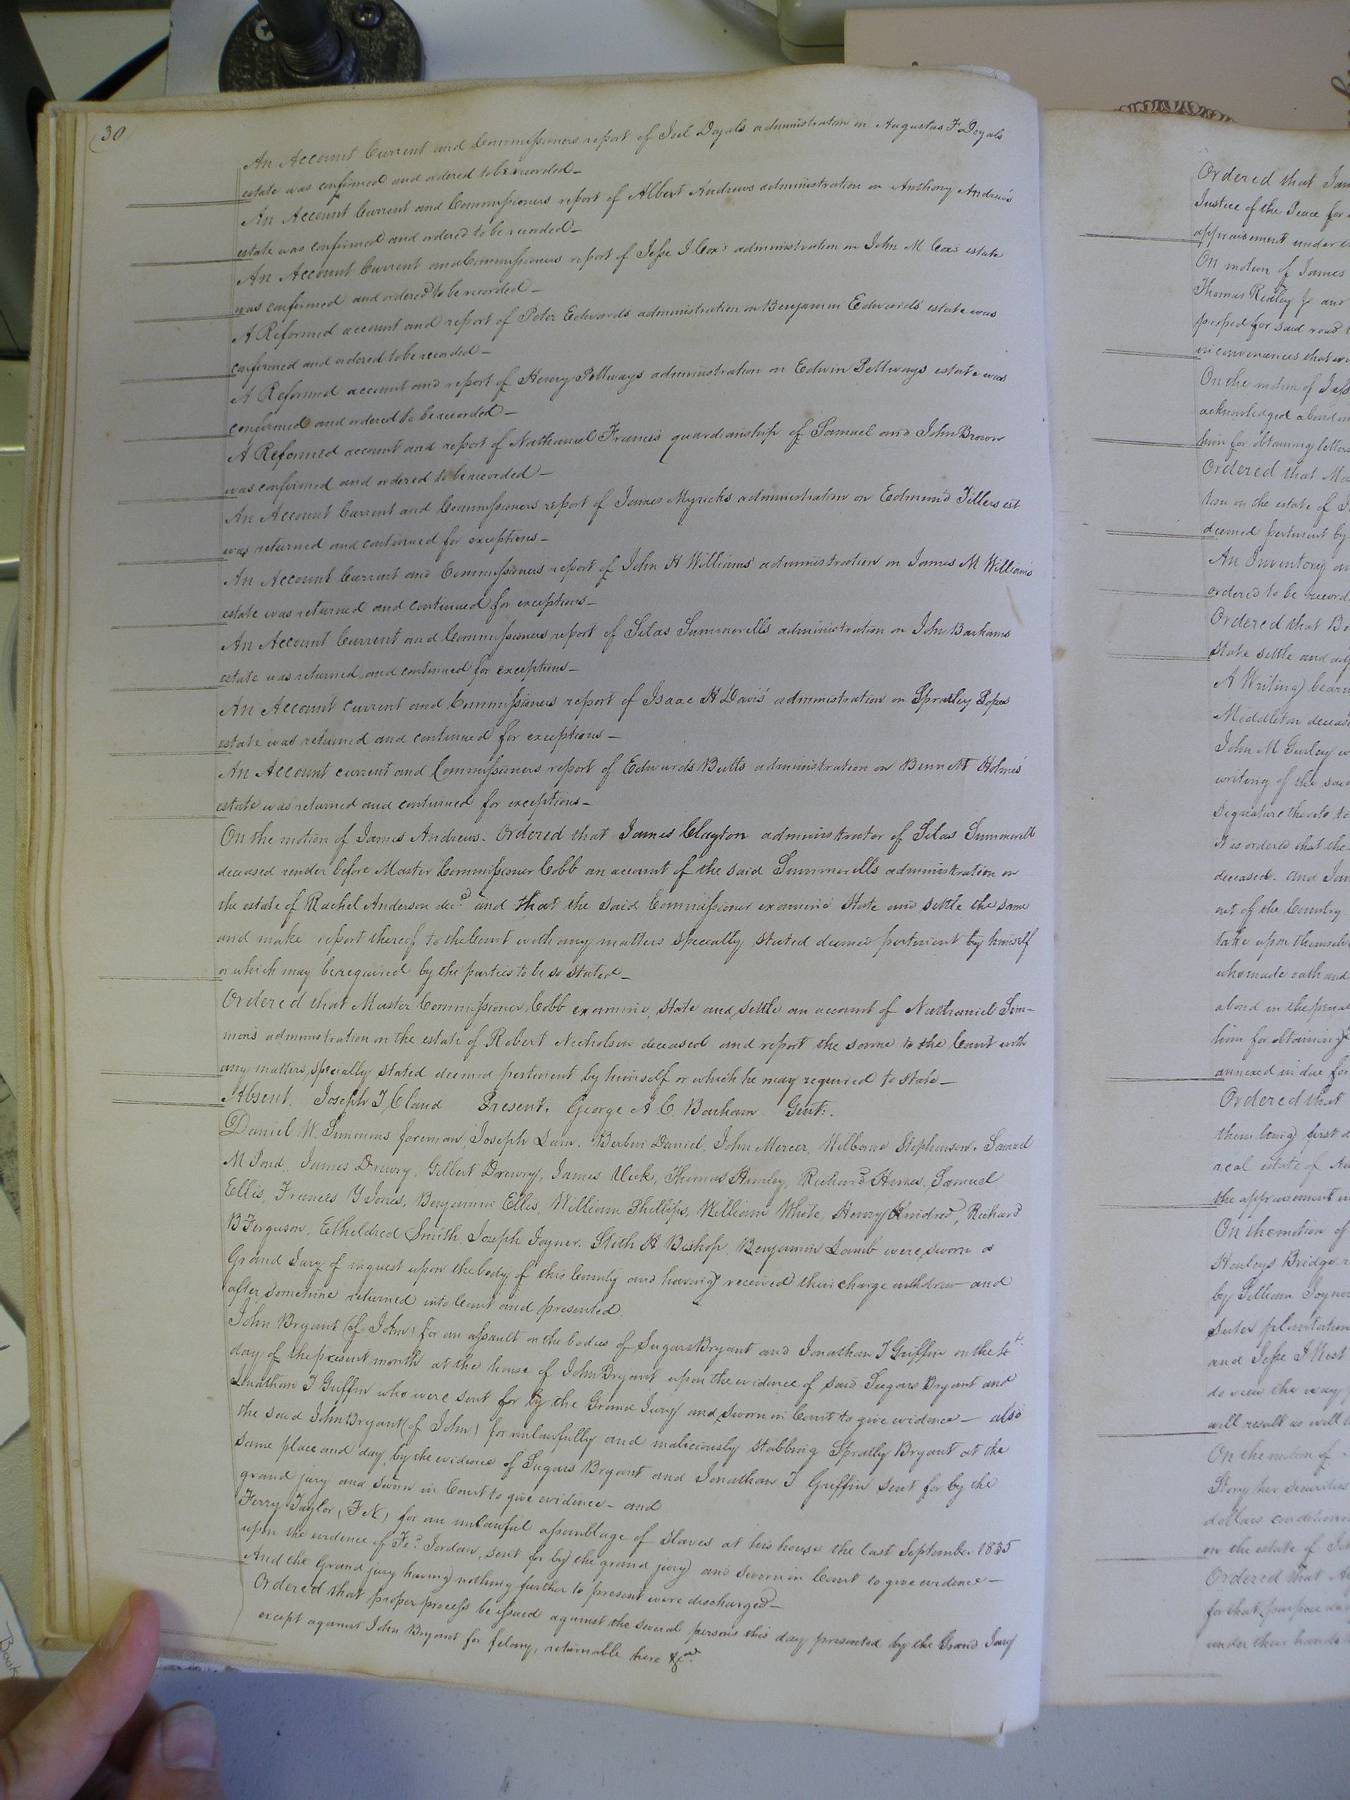 30
An Account Current and Commissioners report of Joel Doyals administration on Augustus F Doyals
estate was confirmed and ordered to be recorded_
An Account Current and Commissioners report of Albert Andrews administration on Anthony Andrews
estate was confirmed and ordered to be recorded_
An Account Current and Commissioners report of Jesse J Cox's administration on John M Cox's estate
was confirmed and ordered to be recorded_
A Reformed account and report of Peter Edwards administration on Benjamin Edwards estate was
confirmed and ordered to be recorded_
A Reformed account and report of Henry Pettways administration on Edwin Pettways estate was
confirmed and ordered to be recorded_
A Reformed account and report of Nathaniel Francis guardianship of Samuel and John Brown
was confirmed and ordered to be recorded_
An Account Current and Commissioners report of James Myricks administration on Edmund Tillers est
was returned and continued for exceptions_
An Account Current and Commissioners report of John H Williams' administration on James M Williams
estate was returned and continued for exceptions_
An Account Current and Commissioners report of Silas Summerells administration on John Barhams
estate was returned and continued for exceptions_
An Account current and Commissioners report of Isaac H Davis' administration on Spratley Popes
estate was returned and continued for exceptions_
An Account current and Commissioners report of Edwards Butts administration on Bennett Holmes'
estate was returned and continued for exceptions_
On the motion of James Andrews. Ordered that James Clayton administrator of Silas Summerell
deceased render before Master Commissioner Cobb an account of the said Summerells administration on
the estate of Rachel Anderson decd and that the said Commissioner examine State and settle the same
and make report thereof to the Court with any matters specially stated deemed pertinent by himself
or which may be required by the parties to be so stated_
Ordered that Master Commissioner Cobb examine, state and settle an account of Nathaniel Sim-
mons administration on the estate of Robert Nicholson deceased and report the same to the Court with
any matters specially stated deemed pertinent by himself or which he may required to state_
Absent. Joseph T Claud Present. George A C Barham Gent:.
Daniel W. Simmons foreman, Joseph Lain, Berbin Daniel, John Mercer, Wilborne Stephenson, Samuel
M Pond, James Drewry, Gilbert Drewry, James Vick, Thomas Hanley, Richard Holmes, Samuel
Ellis, Frances Y Jones, Benjamin Ellis, William Phillips, William White, Henry Kindred, Richard
B Ferguson, Etheldred Smith Joseph Joyner, Stith H Bishop, Benjamin Lamb were sworn a
Grand Jury of inquest upon the body of this County and having received their charge withdrew and
after sometime returned into Court and presented
John Bryant (of John) for an assault on the bodies of Sugars Bryant and Jonathan T Griffin on the
day of the present month at the house of John Bryant upon the evidence of said Sugars Bryant and
Jonathan T Griffin who were sent for by the Grand Jury and sworn in Court to give evidence_ also
the said John Bryant (of John) for unlawfully and maliciously stabbing Spratly Bryant at the
same place and day, by the evidence of Sugars Bryant and Jonathan T Griffin sent for by the
grand jury and sworn in Court to give evidence_ and
Ferry Taylor, (F N) for an unlawful assemblage of slaves at his house the last September 1835
upon the evidence of Jordan, sent for by the grand jury and sworn in Court to give evidence_
And the Grand jury having nothing further to present were discharged_
Ordered that proper process be issued against the several persons this day presented by the Grand Jury
except against John Bryant for felony, returnable here &ca
Ordered that Jam
Justice of the Peace for
appraisement under
On motion of James
Thomas Ridley Jr and
proposed for said road
inconveniences that
On the motion of Jess
acknowledged a bond
him for obtaining letters
Ordered that Ma
tion on the estate of
deemed pertinent by
An Inventory an
ordered to be record
Ordered that
State settle and
A Writing bearin
Middleton decease
John M Gurley w
writing of the said
Signature thereto to
It is ordered that the
deceased. and Jam
out of the Country
take upon themselv
who made oath and
a bond in the penal
him for obtaining
annexed in due for
Ordered that
them being first
real estate of
the appraisement
On the motion of
Hanleys Bridge
by William Joyner
plantation
and Jesse
to view the way
will result as well
On the motion of
Story her securities
dollars conditioned
on the estate of
Ordered that
for that purpose
under their hands